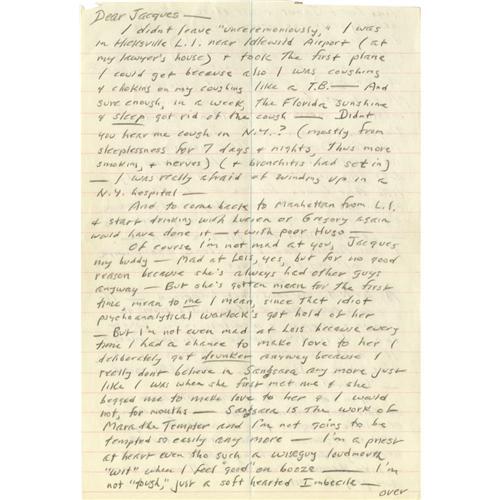 Dear Jacques —
I didnt leave "unceremoniously," I was
in Hicksville L.I. near Idlewild Airport (at
my lawyer's house) & took the first plane
I could get because also I was coughing
& choking on my coughing like a T.B. — And
sure enough, in a week, the Florida sunshine
& sleep got rid of the cough — Didnt
you hear me cough in N.Y.? (mostly from
sleeplessness for 7 days & nights, thus more
smoking, & nerves) (& bronchitis had set in)
— I was really afraid of winding up in a
N.Y. hospital —
And to come back to Manhattan from L.I.
& start drinking with Lucien or Gregory again
would have done it — & with poor Hugo —
Of course I'm not mad at you, Jacques
my buddy — Mad at Lois, yes, but for no good
reason because she's always had other guys
anyway — But she's gotten mean for the first
time, mean to me I mean, since that idiot
psychoanalytical warlock's got hold of her
— But I'm not even mad at Lois because every
time I had a chance to make love to her I
deliberately got drunker anyway because I
really dont believe in Sangsara any more just
like I was when she first met me & she
begged me to make love to her & I would
not, for months — Sangsara is the work of
Mara the Tempter and I'm not going to be
tempted so easily any more — I'm a priest
at heart even tho such a wiseguy loudmouth
"wit" when I feel good on booze — I'm
not "tough," just a soft hearted Imbecile —
over